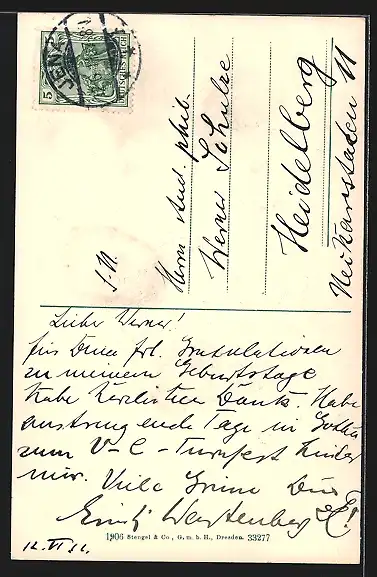 JENA
5
DEUTSCHES REICH
S. H.
Herrn stud. phil.
Werner Schulze
Heidelberg
Neckarstaden 11
Lieber Werner!
für Deine frl. Gratulationen
zu meinem Geburtstage
habe herzlichen Dank. Habe
anstrengende Tage in Gotha
zum V-C-Turnfest hinter
mir. Viele Grüsse Dein
Emil Wartenberg
1906 Stengel & Co., G. m. b. H., Dresden. 33277
12. VI 11.